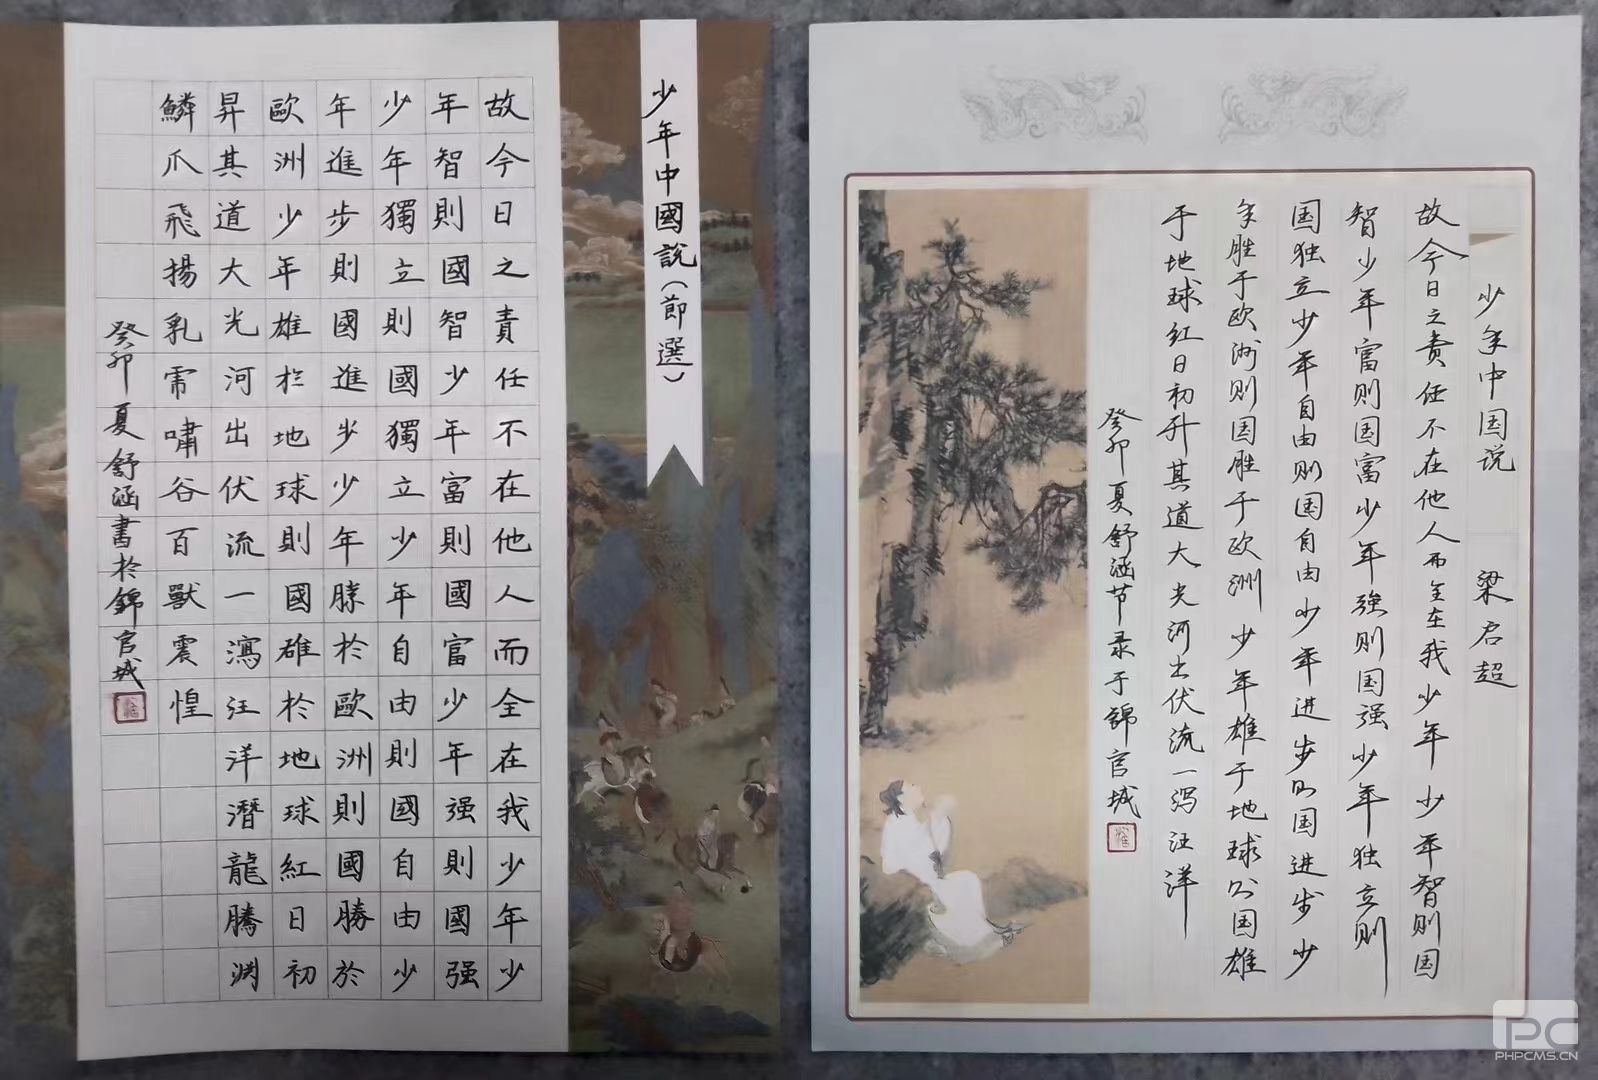 少年中國說（節選）
故今日之責任不在他人而全在我少年少
年智則國智少年富則國富少年强則國强
少年獨立則國獨立少年自由則國自由少
年進步則國進步少年勝於歐洲則國勝於
歐洲少年雄於地球則國雄於地球紅日初
昇其道大光河出伏流一瀉汪洋潛龍騰渊
鱗爪飛揚乳虎嘯谷百獸震惶
癸卯夏舒涵書於錦官城
少年中国说 梁启超
故今日之责任不在他人而全在我少年少年智则国
智少年富则国富少年强则国强少年独立则
国独立少年自由则国自由少年进步则国进步少
年胜于欧洲则国胜于欧洲少年雄于地球则国雄
于地球红日初升其道大光河出伏流一泻汪洋
癸卯夏舒涵节录于錦官城
PC
PHPCMS.CN